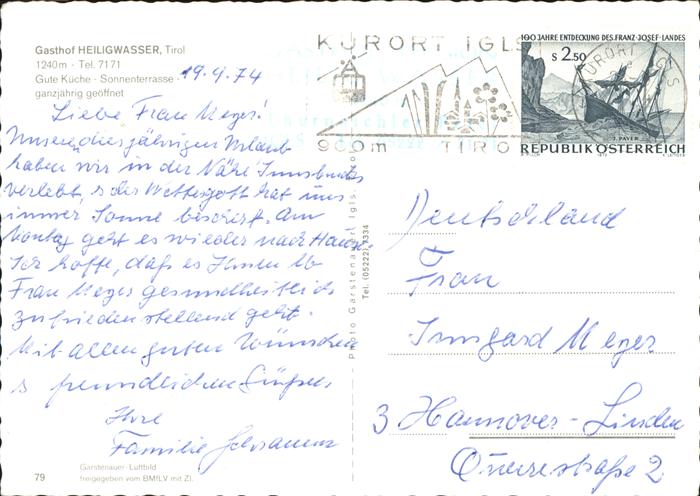 Gasthof HEILIGWASSER, Tirol
1240m · Tel. 7171
Gute Küche · Sonnenterrasse ·
ganzjährig geöffnet
19.9.74
Liebe Frau Meyer!
Unseren diesjährigen Urlaub
haben wir in der Nähe Innsbrucks
verlebt, der Wettergott hat uns
immer Sonne beschert. Am
Montag geht es wieder nach Hause.
Ich hoffe, daß es Ihnen lb
Frau Meyer gesundheitlich
zufriedenstellend geht.
Mit allen guten Wünschen
freundlichen Grüßen,
Ihre
Familie
79
Garstenauer-Luftbild
freigegeben vom BMfLV mit Zl.
Photo Garstenauer Igls
Tel. (05222) 7334
KURORT IGLS
900m TIROL
100 JAHRE ENTDECKUNG DES FRANZ-JOSEF-LANDES
S 2.50
J. PAYER
REPUBLIK ÖSTERREICH
KURORT IGLS
Deutschland
Frau
Irmgard Meyer
3 Hannover-Linden
2